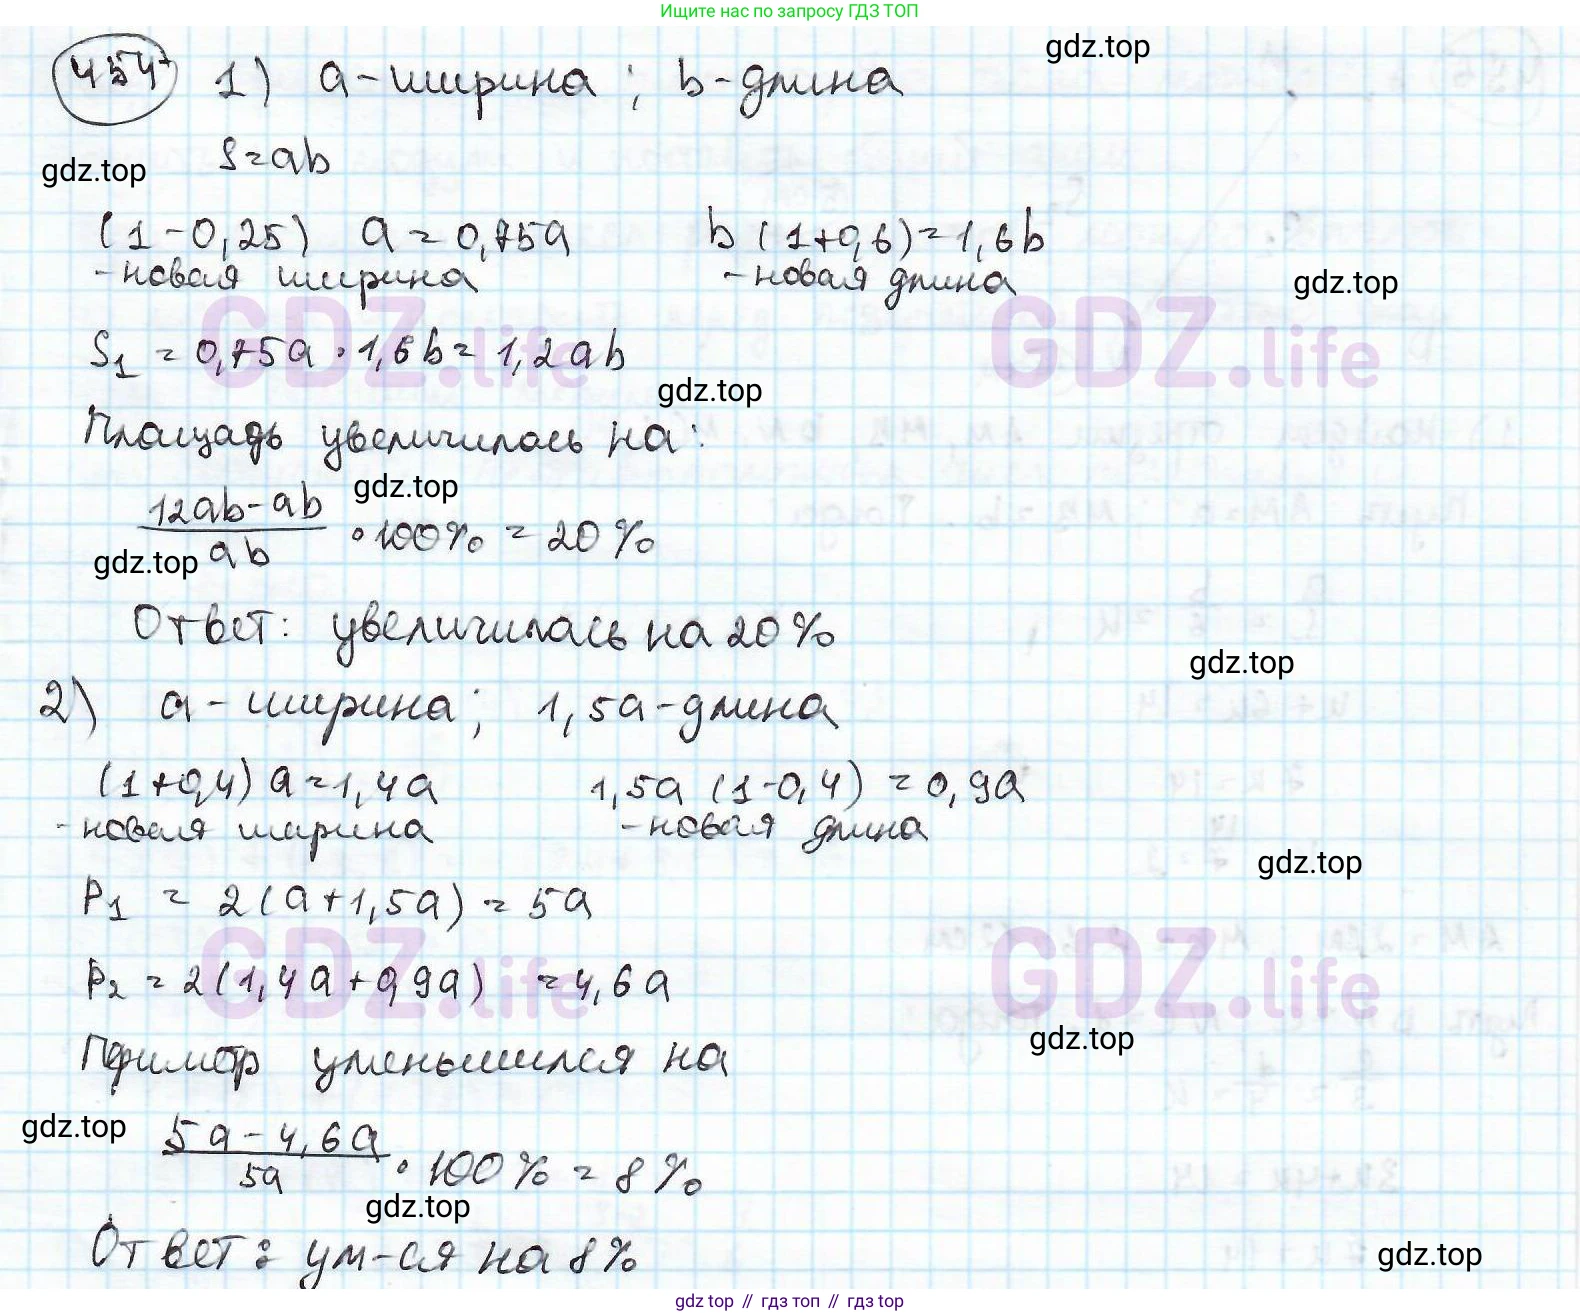 Ищите нас по запросу ГДЗ ТОП
454 1) a - ширина ; b - длина
gdz.top
S = ab
gdz.top
(1 - 0,25) a = 0,75a b (1+0,6) = 1,6b
- новая ширина - новая длина
gdz.top
GDZ.life GDZ.life
S₁ = 0,75a · 1,6b = 1,2ab
gdz.top
Площадь увеличилась на:
12ab - ab / ab · 100% = 20%
gdz.top
gdz.top
Ответ: увеличилась на 20%
gdz.top
2) a - ширина; 1,5a - длина
(1+0,4) a = 1,4a 1,5a (1-0,4) = 0,9a
- новая ширина - новая длина
gdz.top
P₁ = 2(a+1,5a) = 5a
GDZ.life GDZ.life
P₂ = 2(1,4a+0,9a) = 4,6a
gdz.top
Периметр уменьшился на
gdz.top
5a - 4,6a / 5a · 100% = 8%
gdz.top
Ответ: ум-ся на 8%
gdz.top
gdz top // гдз топ // гдз top